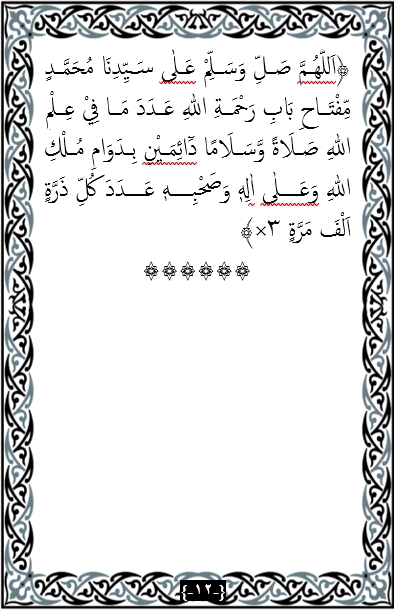 ﴿اَللّٰهُمَّ صَلِّ وَسَلِّمْ عَلٰى سَيِّدِنَا مُحَمَّدٍ
مِّفْتَاحِ بَابِ رَحْمَةِ اللهِ عَدَدَ مَا فِيْ عِلْمِ
اللهِ صَلَاةً وَّسَلَامًا دَآئِمَيْنِ بِدَوَامِ مُلْكِ
اللهِ وَعَلٰى اٰلِهٖ وَصَحْبِهٖ عَدَدَ كُلِّ ذَرَّةٍ
اَلْفَ مَرَّةٍ ٣×﴾
{-١٢-}